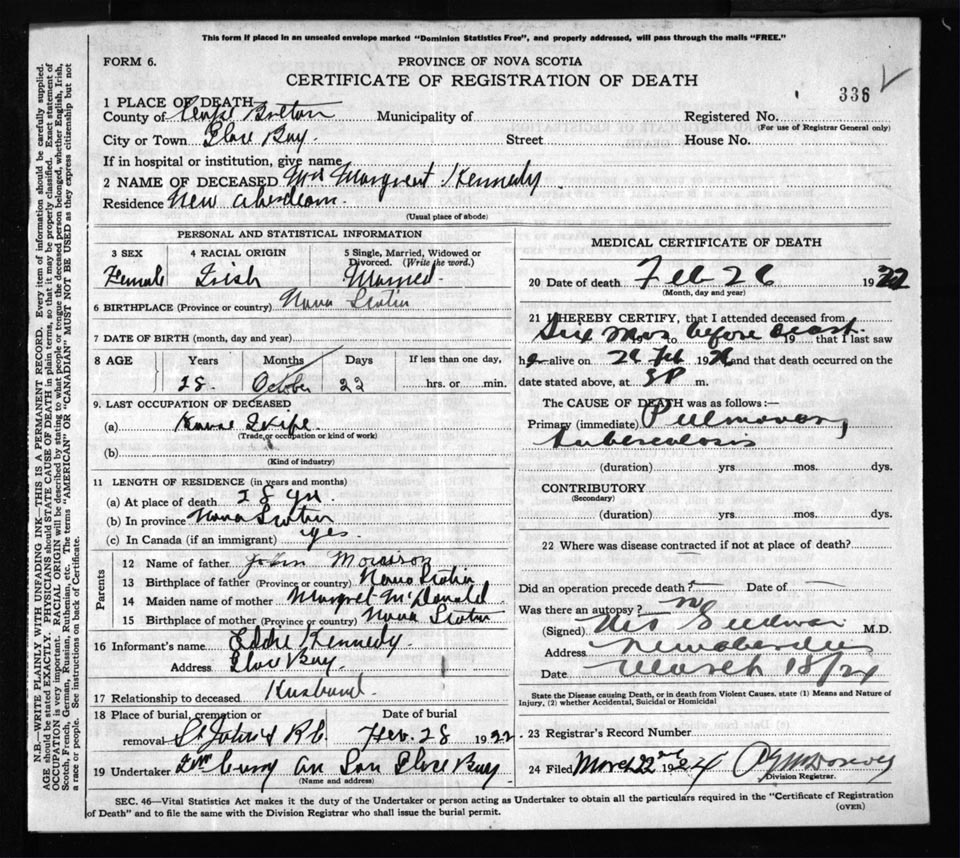 This form if placed in an unsealed envelope marked "Dominion Statistics Free", and properly addressed, will pass through the mails "FREE."
FORM 6.
PROVINCE OF NOVA SCOTIA
CERTIFICATE OF REGISTRATION OF DEATH
336
1 PLACE OF DEATH
County of Cape Breton Municipality of Registered No.
(For use of Registrar General only)
City or Town Glace Bay Street House No.
If in hospital or institution, give name
2 NAME OF DECEASED Mrs Margret Kennedy
Residence New Aberdeen
(Usual place of abode)
PERSONAL AND STATISTICAL INFORMATION
3 SEX 4 RACIAL ORIGIN 5 Single, Married, Widowed or Divorced. (Write the word.)
Female Irish Married
6 BIRTHPLACE (Province or country) Nova Scotia
7 DATE OF BIRTH (month, day and year)
8 AGE Years Months Days If less than one day,
28 October 22 hrs. or min.
9. LAST OCCUPATION OF DECEASED
(a) House Wife
(Trade, or occupation or kind of work)
(b)
(Kind of industry)
11 LENGTH OF RESIDENCE (in years and months)
(a) At place of death 28 yrs
(b) In province Nova Scotia
(c) In Canada (if an immigrant) yes
Parents
12 Name of father John Morrison
13 Birthplace of father (Province or country) Nova Scotia
14 Maiden name of mother Margret McDonald
15 Birthplace of mother (Province or country) Nova Scotia
16 Informant's name Eddie Kennedy
Address Glace Bay
17 Relationship to deceased Husband
18 Place of burial, cremation or Date of burial
removal St Johns R.C. Feb. 28 1922
19 Undertaker Curry an Son Glace Bay
(Name and address)
MEDICAL CERTIFICATE OF DEATH
20 Date of death Feb 26 1922
(Month, day and year)
21 I HEREBY CERTIFY, that I attended deceased from
Six Mos before death 19 that I last saw
h alive on 26 Feb 19 and that death occurred on the
date stated above, at m.
The CAUSE OF DEATH was as follows:—
Primary (immediate) Pulmonary
tuberculosis
(duration) yrs. mos. dys.
CONTRIBUTORY
(Secondary)
(duration) yrs. mos. dys.
22 Where was disease contracted if not at place of death?
Did an operation precede death? Date of
Was there an autopsy? no
(Signed) M.D.
Address New Aberdeen
Date March 18/24
State the Disease causing Death, or in death from Violent Causes, state (1) Means and Nature of Injury, (2) whether Accidental, Suicidal or Homicidal
23 Registrar's Record Number
24 Filed March 22 1924
Division Registrar.
SEC. 46—Vital Statistics Act makes it the duty of the Undertaker or person acting as Undertaker to obtain all the particulars required in the "Certificate of Registration
of Death" and to file the same with the Division Registrar who shall issue the burial permit.
(OVER)
N.B.—WRITE PLAINLY WITH UNFADING INK—THIS IS A PERMANENT RECORD. Every item of information should be carefully supplied.
AGE should be stated EXACTLY. PHYSICIANS should STATE CAUSE OF DEATH in plain terms, so that it may be properly classified. Exact statement of
OCCUPATION is very important. RACIAL ORIGIN will be described by stating to what people or tongue the deceased person belonged, whether English, Irish,
Scotch, French, German, Russian, Ruthenian, etc. The terms "AMERICAN" OR "CANADIAN" MUST NOT BE USED as they express citizenship but not
a race or people. See instructions on back of Certificate.